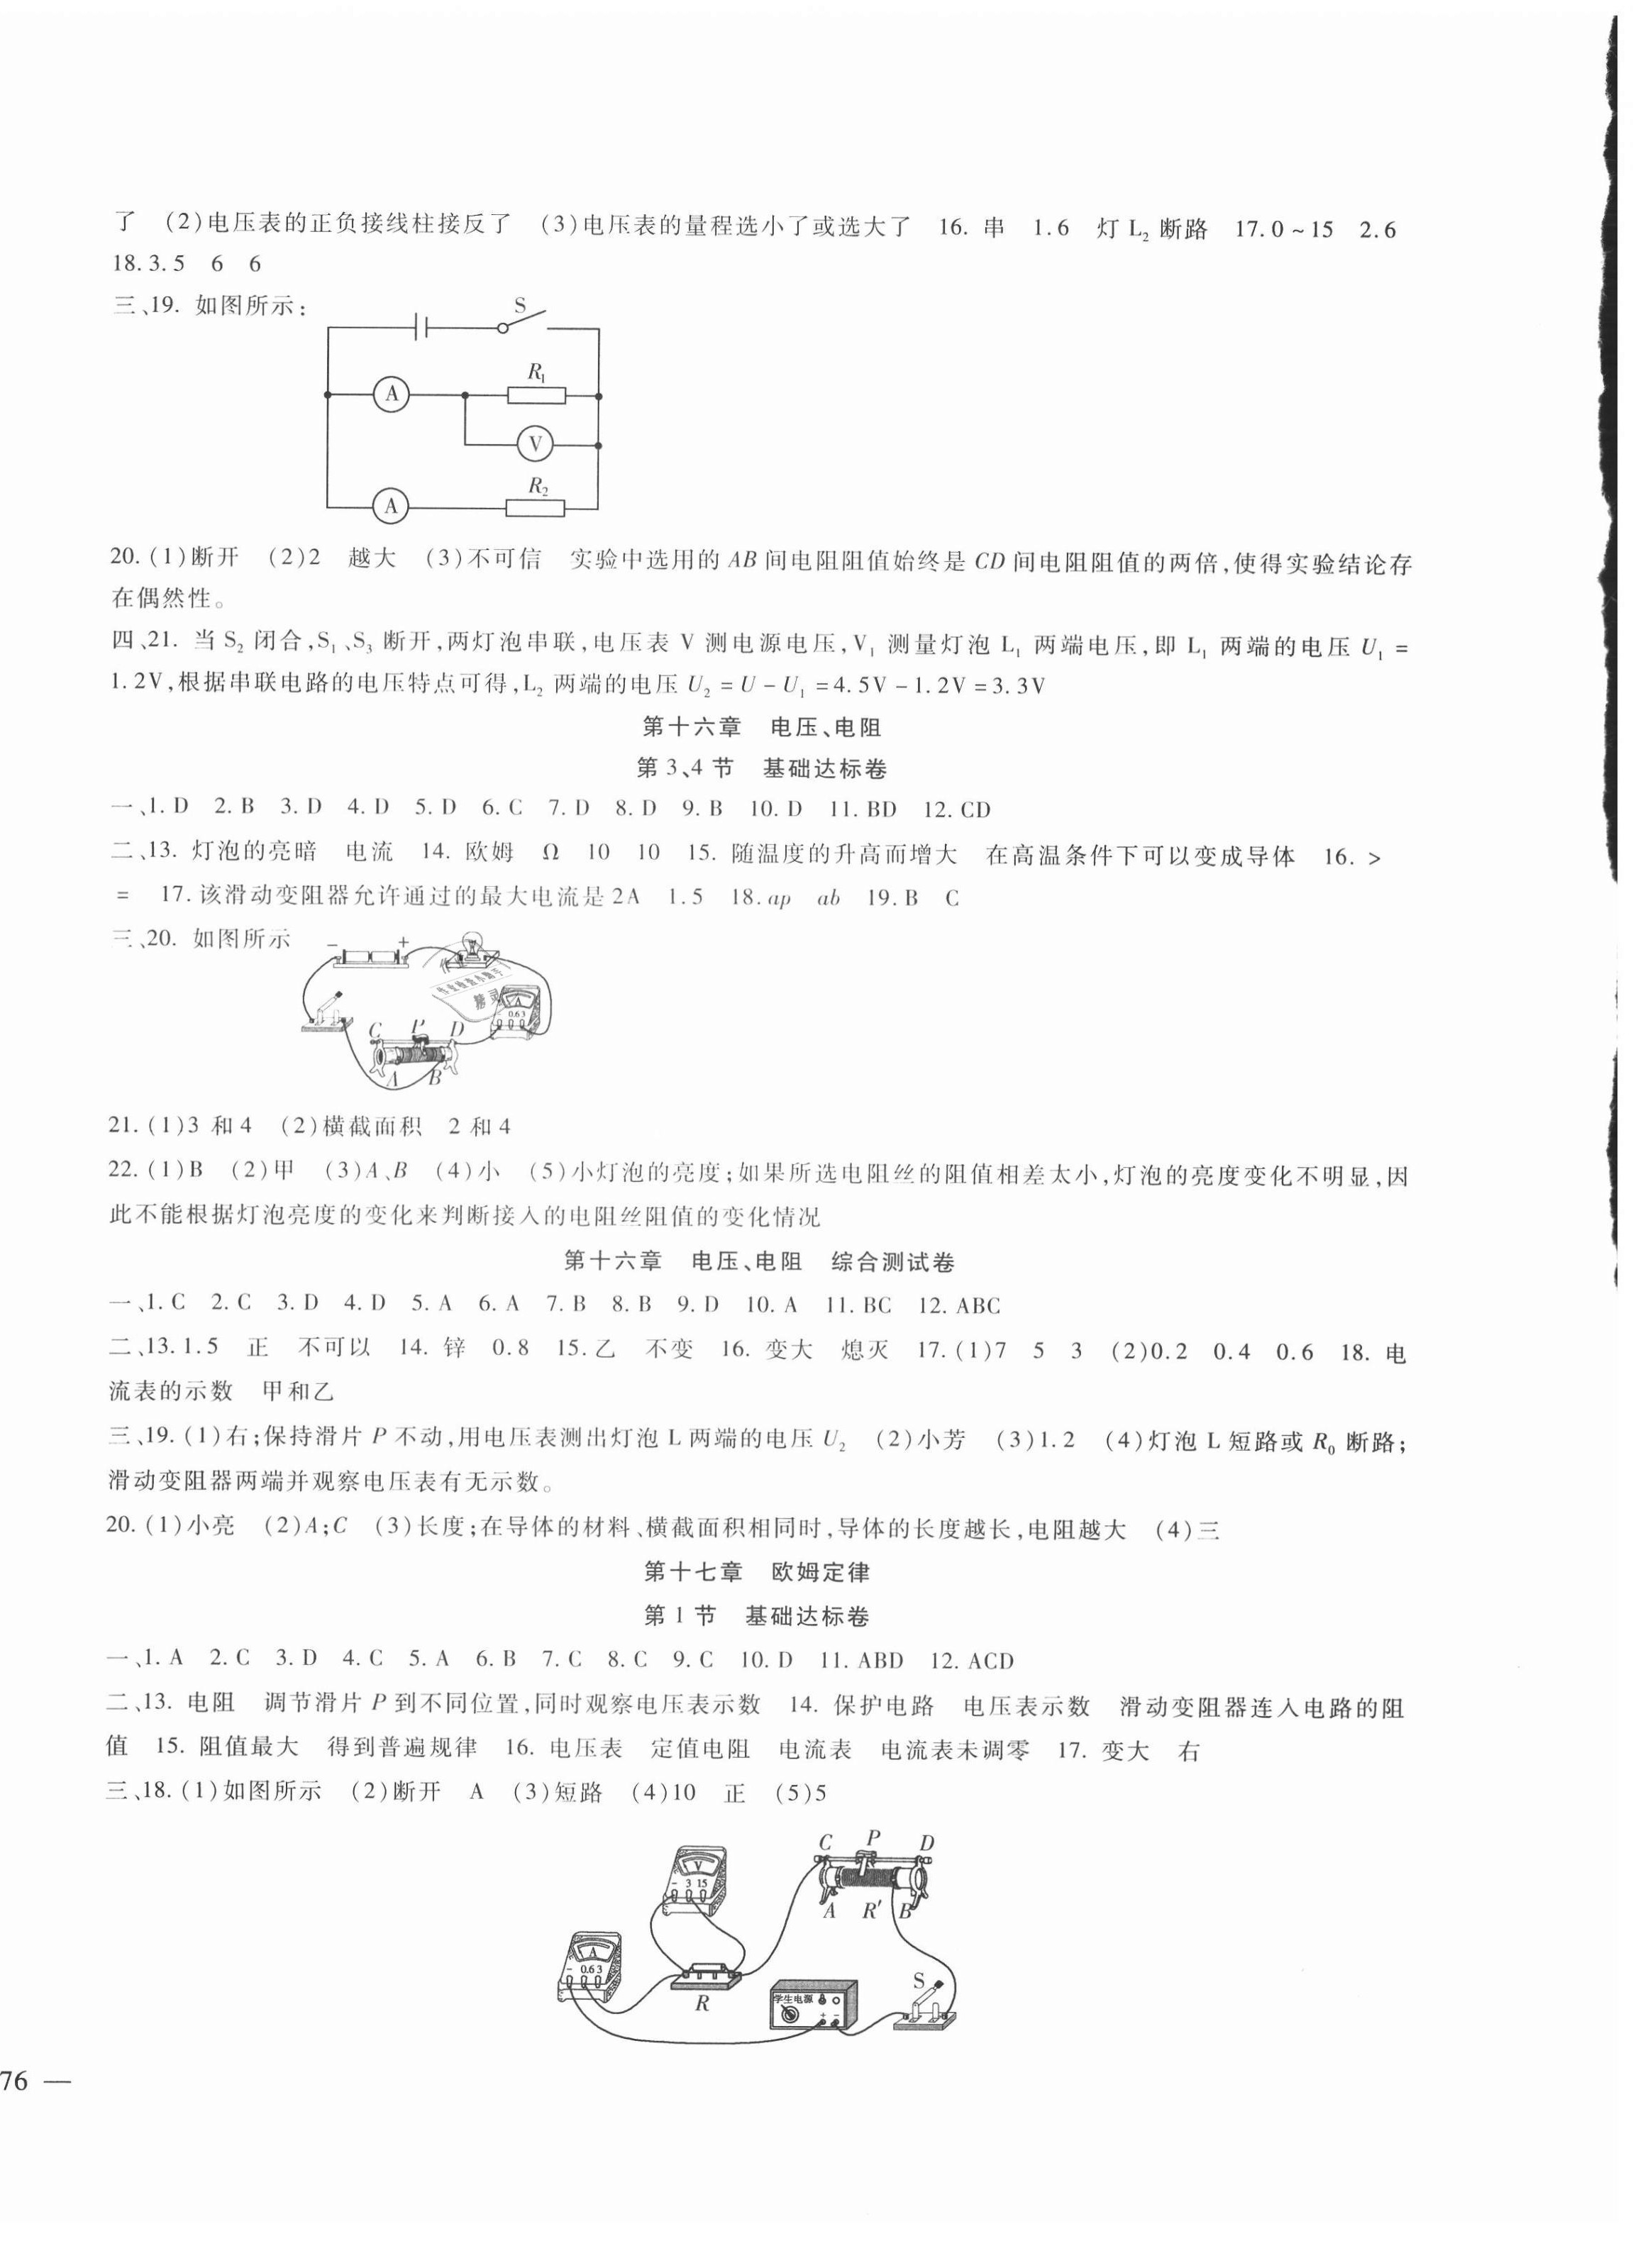 了 (2)电压表的正负接线柱接反了 (3)电压表的量程选小了或选大了 16. 串 1.6 灯 L₂ 断路 17.0~15 2.6
18.3.5 6 6
三、19. 如图所示:
S
R₁
A
V
R₂
A
20.(1)断开 (2)2 越大 (3)不可信 实验中选用的 AB 间电阻阻值始终是 CD 间电阻阻值的两倍,使得实验结论存
在偶然性。
四、21. 当 S₂ 闭合,S₁、S₃ 断开,两灯泡串联,电压表 V 测电源电压,V₁ 测量灯泡 L₁ 两端电压,即 L₁ 两端的电压 U₁ =
1.2V,根据串联电路的电压特点可得,L₂ 两端的电压 U₂ = U - U₁ = 4.5V - 1.2V = 3.3V
第十六章 电压、电阻
第 3、4 节 基础达标卷
一、1. D 2. B 3. D 4. D 5. D 6. C 7. D 8. D 9. B 10. D 11. BD 12. CD
二、13. 灯泡的亮暗 电流 14. 欧姆 Ω 10 10 15. 随温度的升高而增大 在高温条件下可以变成导体 16. >
= 17.该滑动变阻器允许通过的最大电流是 2A 1.5 18. ap ab 19. B C
三、20. 如图所示
- +
A
0.6 3
C P D
A B
21.(1)3 和 4 (2)横截面积 2 和 4
22.(1)B (2)甲 (3)A、B (4)小 (5)小灯泡的亮度;如果所选电阻丝的阻值相差太小,灯泡的亮度变化不明显,因
此不能根据灯泡亮度的变化来判断接入的电阻丝阻值的变化情况
第十六章 电压、电阻 综合测试卷
一、1. C 2. C 3. D 4. D 5. A 6. A 7. B 8. B 9. D 10. A 11. BC 12. ABC
二、13.1.5 正 不可以 14. 锌 0.8 15.乙 不变 16. 变大 熄灭 17.(1)7 5 3 (2)0.2 0.4 0.6 18. 电
流表的示数 甲和乙
三、19.(1)右;保持滑片 P 不动,用电压表测出灯泡 L 两端的电压 U₂ (2)小芳 (3)1.2 (4)灯泡 L 短路或 R₀ 断路;
滑动变阻器两端并观察电压表有无示数。
20.(1)小亮 (2)A;C (3)长度;在导体的材料、横截面积相同时,导体的长度越长,电阻越大 (4)三
第十七章 欧姆定律
第 1 节 基础达标卷
一、1. A 2. C 3. D 4. C 5. A 6. B 7. C 8. C 9. C 10. D 11. ABD 12. ACD
二、13. 电阻 调节滑片 P 到不同位置,同时观察电压表示数 14. 保护电路 电压表示数 滑动变阻器连入电路的阻
值 15. 阻值最大 得到普遍规律 16. 电压表 定值电阻 电流表 电流表未调零 17. 变大 右
三、18.(1)如图所示 (2)断开 A (3)短路 (4)10 正 (5)5
C P D
V
- 3 15
A R′ B
A
- 0.6 3
R
学生电源
+ -
S
76 —